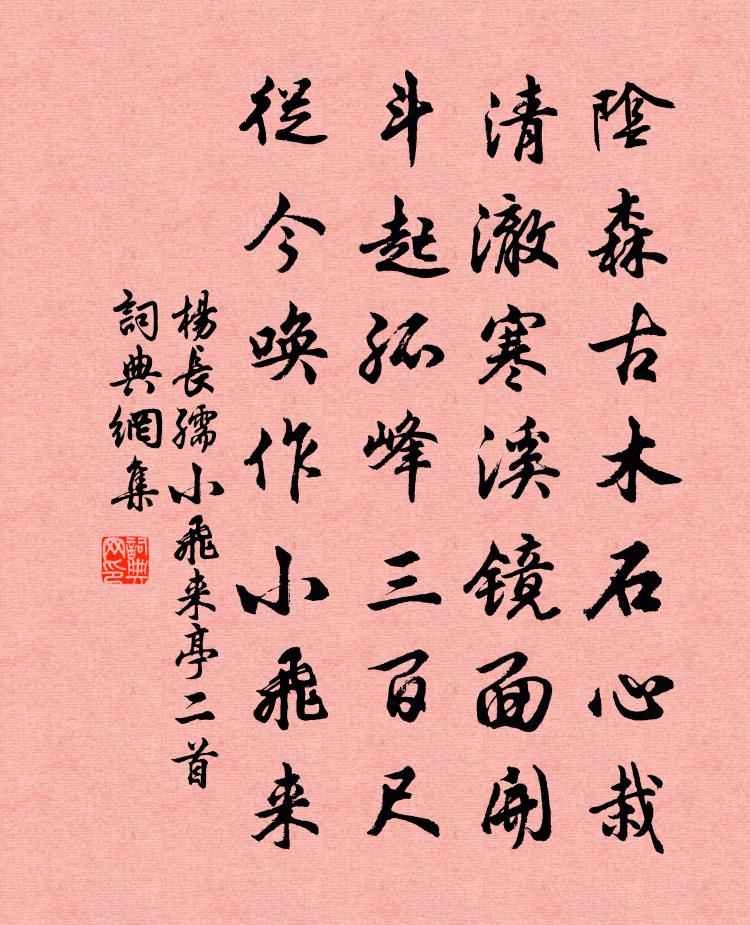 陰森古木石心栽
清澈寒溪镜面開
斗起孤峰三百尺
從今唤作小飛来
楊長孺小飛来亭二首
詞典網集
詞典网印